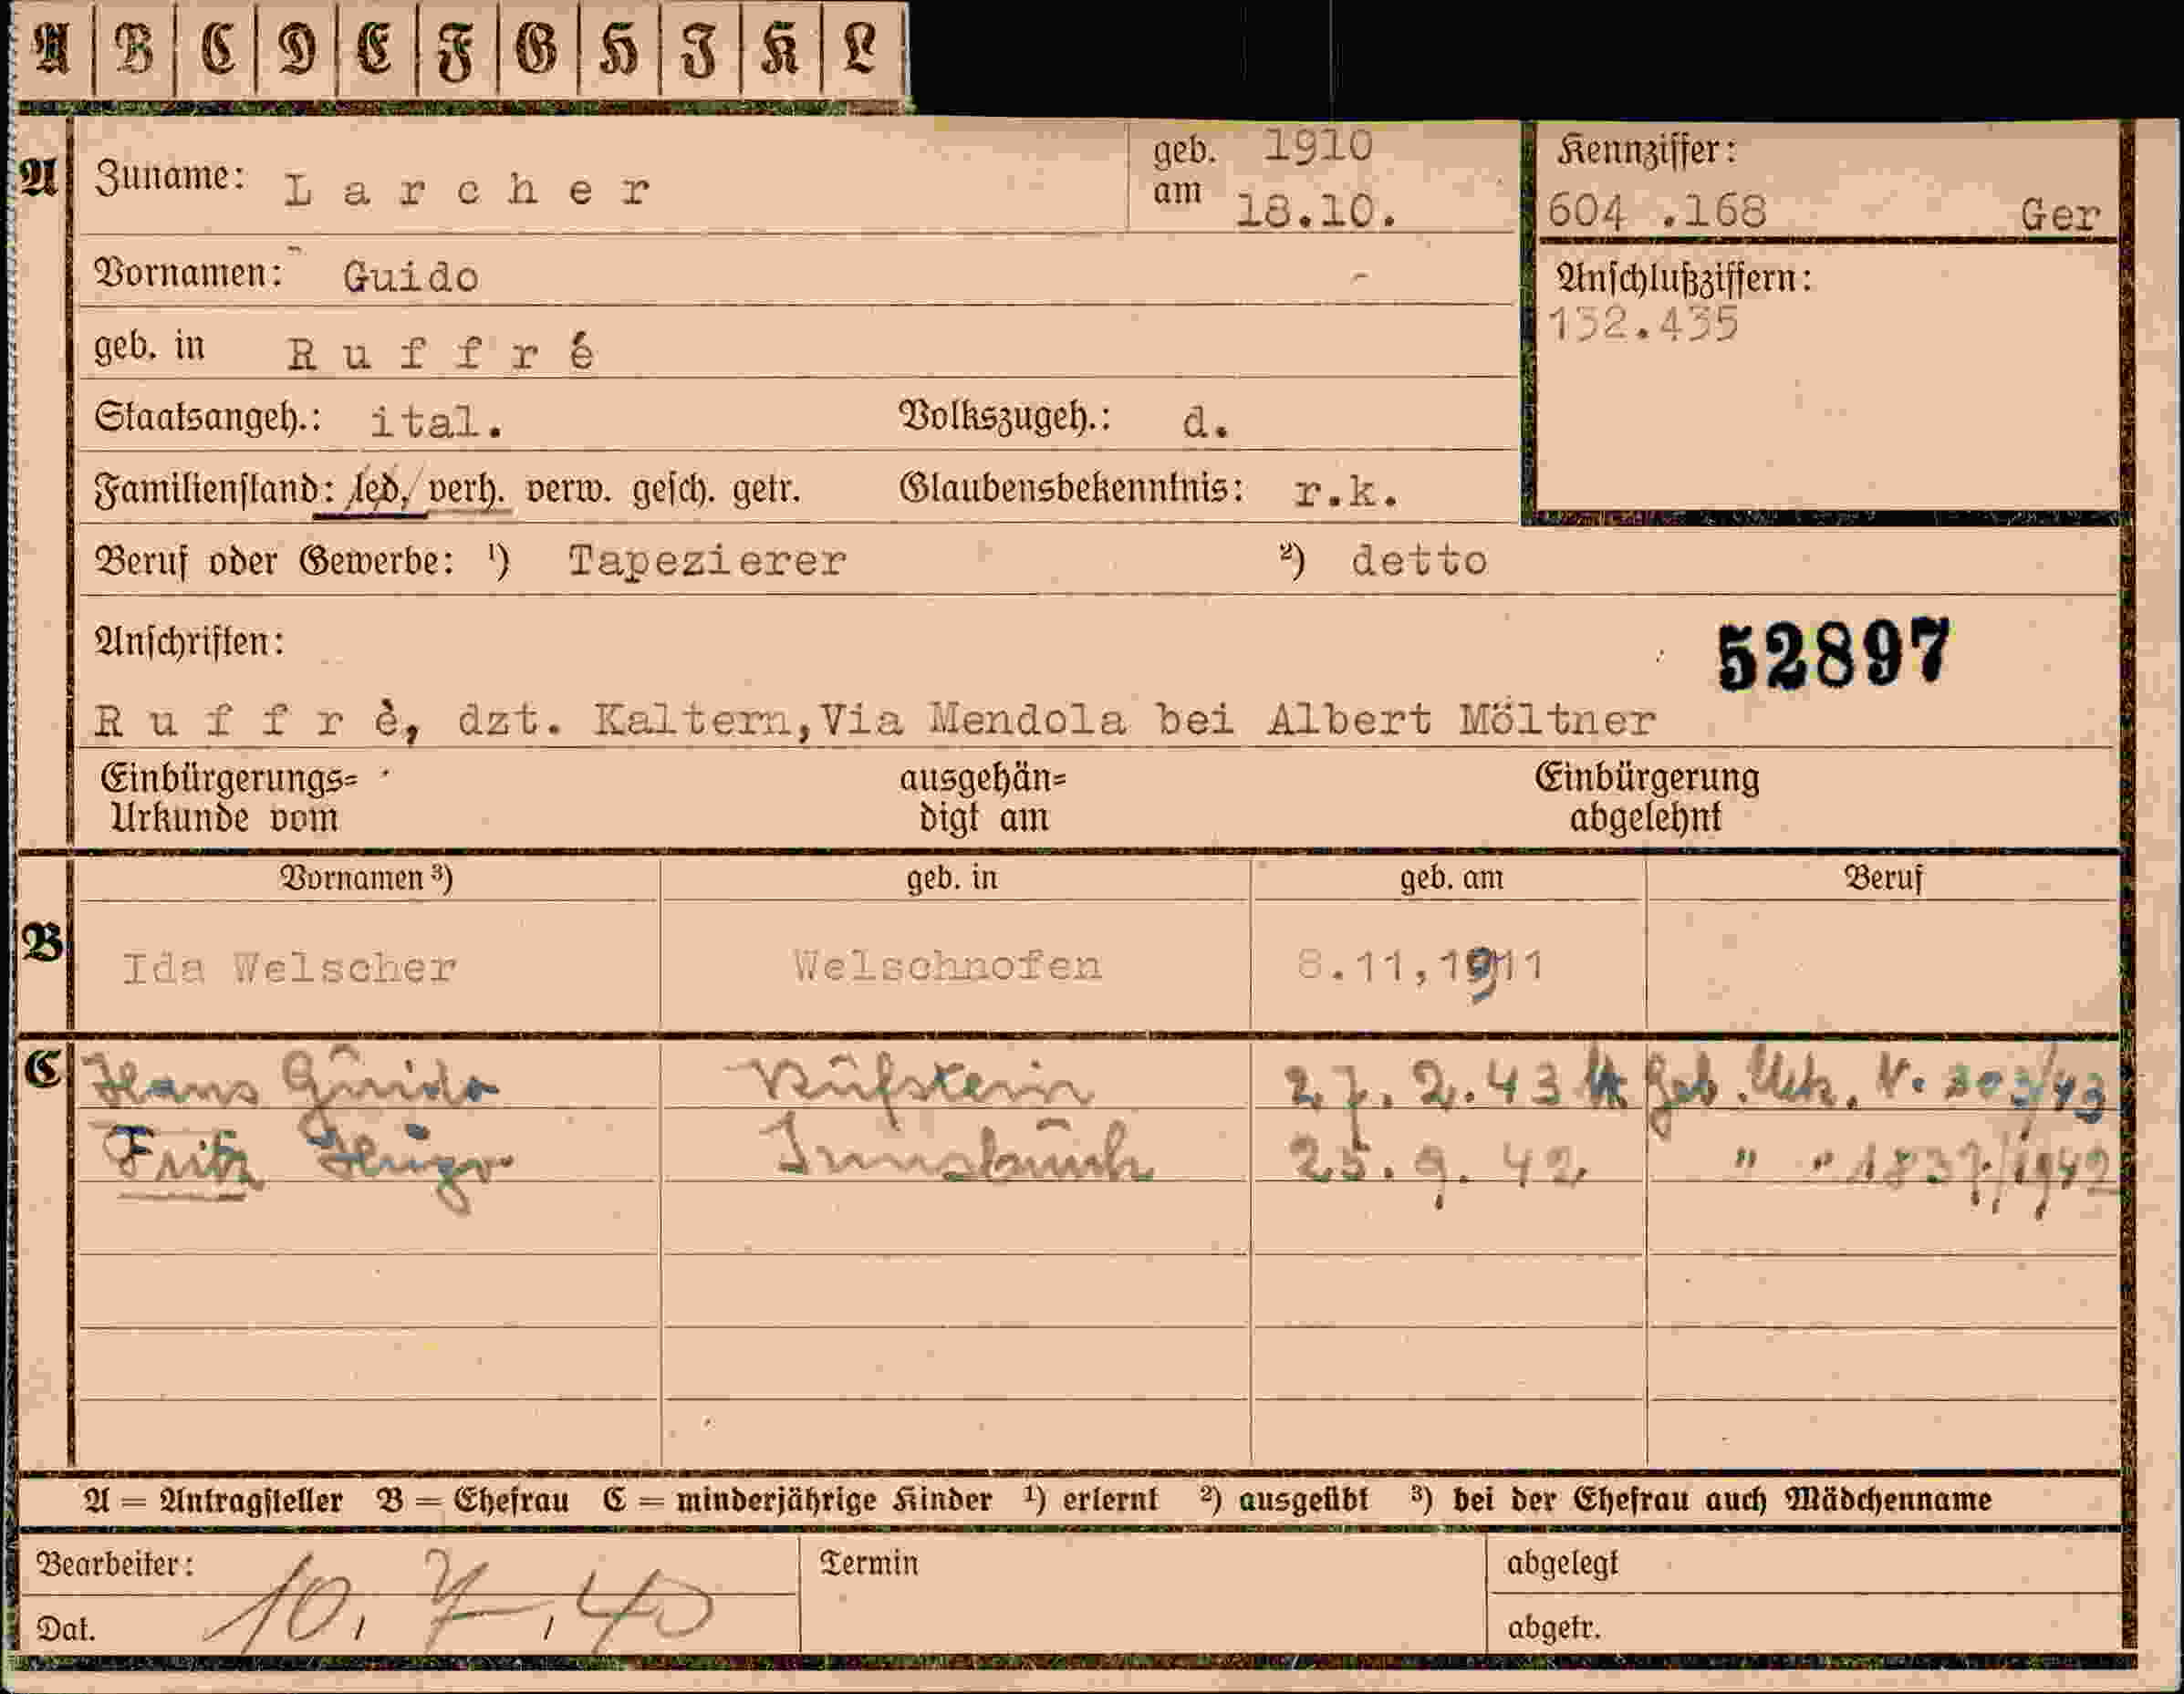 A B C D E F G H I K L
A Zuname: Larcher geb. am 1910 18.10. Kennziffer: 604 .168 Ger
Vornamen: Guido - Anschlußziffern: 132.435
geb. in Ruffré
Staatsangeh.: ital. Volkszugeh.: d.
Familienstand: led. verh. verw. gesch. getr. Glaubensbekenntnis: r.k.
Beruf oder Gewerbe: ¹) Tapezierer ²) detto
Anschriften: 52897
Ruffrè, dzt. Kaltern,Via Mendola bei Albert Möltner
Einbürgerungs= ausgehän= Einbürgerung
Urkunde vom digt am abgelehnt
Vornamen ³) geb. in geb. am Beruf
B Ida Welscher Welschnofen 8.11,1911
C Hans Guido Kufstein 27.2.43 Geb. Urk. N. 303/43
Fritz Hugo Innsbruck 25.9.42 " " 1837/1942
A = Antragsteller B = Ehefrau C = minderjährige Kinder ¹) erlernt ²) ausgeübt ³) bei der Ehefrau auch Mädchenname
Bearbeiter: Termin abgelegt
Dat. 10.7.40 abgetr.